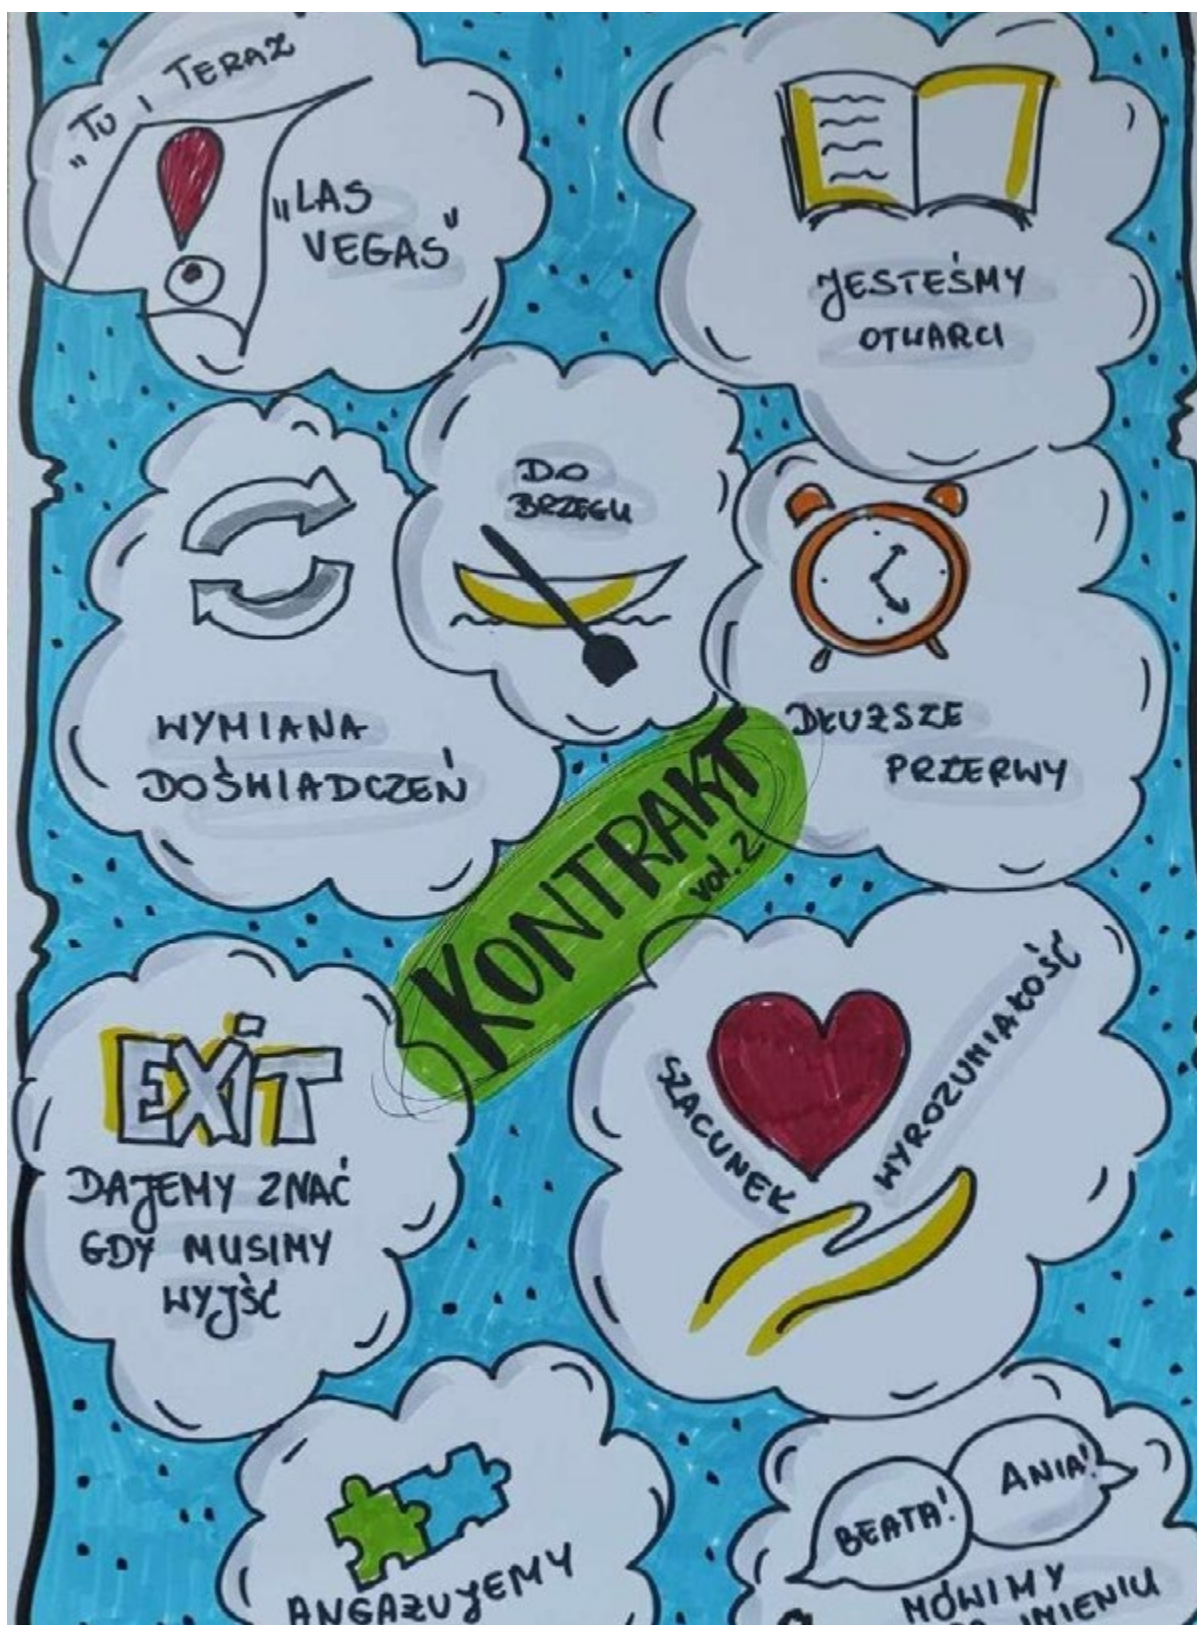 „TU I TERAZ
„LAS
VEGAS"
JESTEŚMY
OTWARCI
DO
BRZEGU
WYMIANA
DOŚWIADCZEŃ
DŁUŻSZE
PRZERWY
KONTRAKT
vol. 2
EXIT
DAJEMY ZNAĆ
GDY MUSIMY
WYJŚĆ
SZACUNEK
WYROZUMIAŁOŚĆ
ANGAŻUJEMY
BEATA!
ANIA!
MÓWIMY
IMIENIU